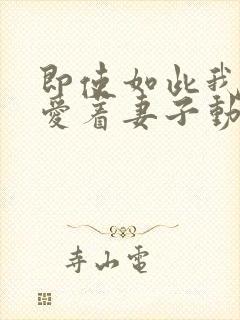 即使如此我
爱着妻子動
寺山電